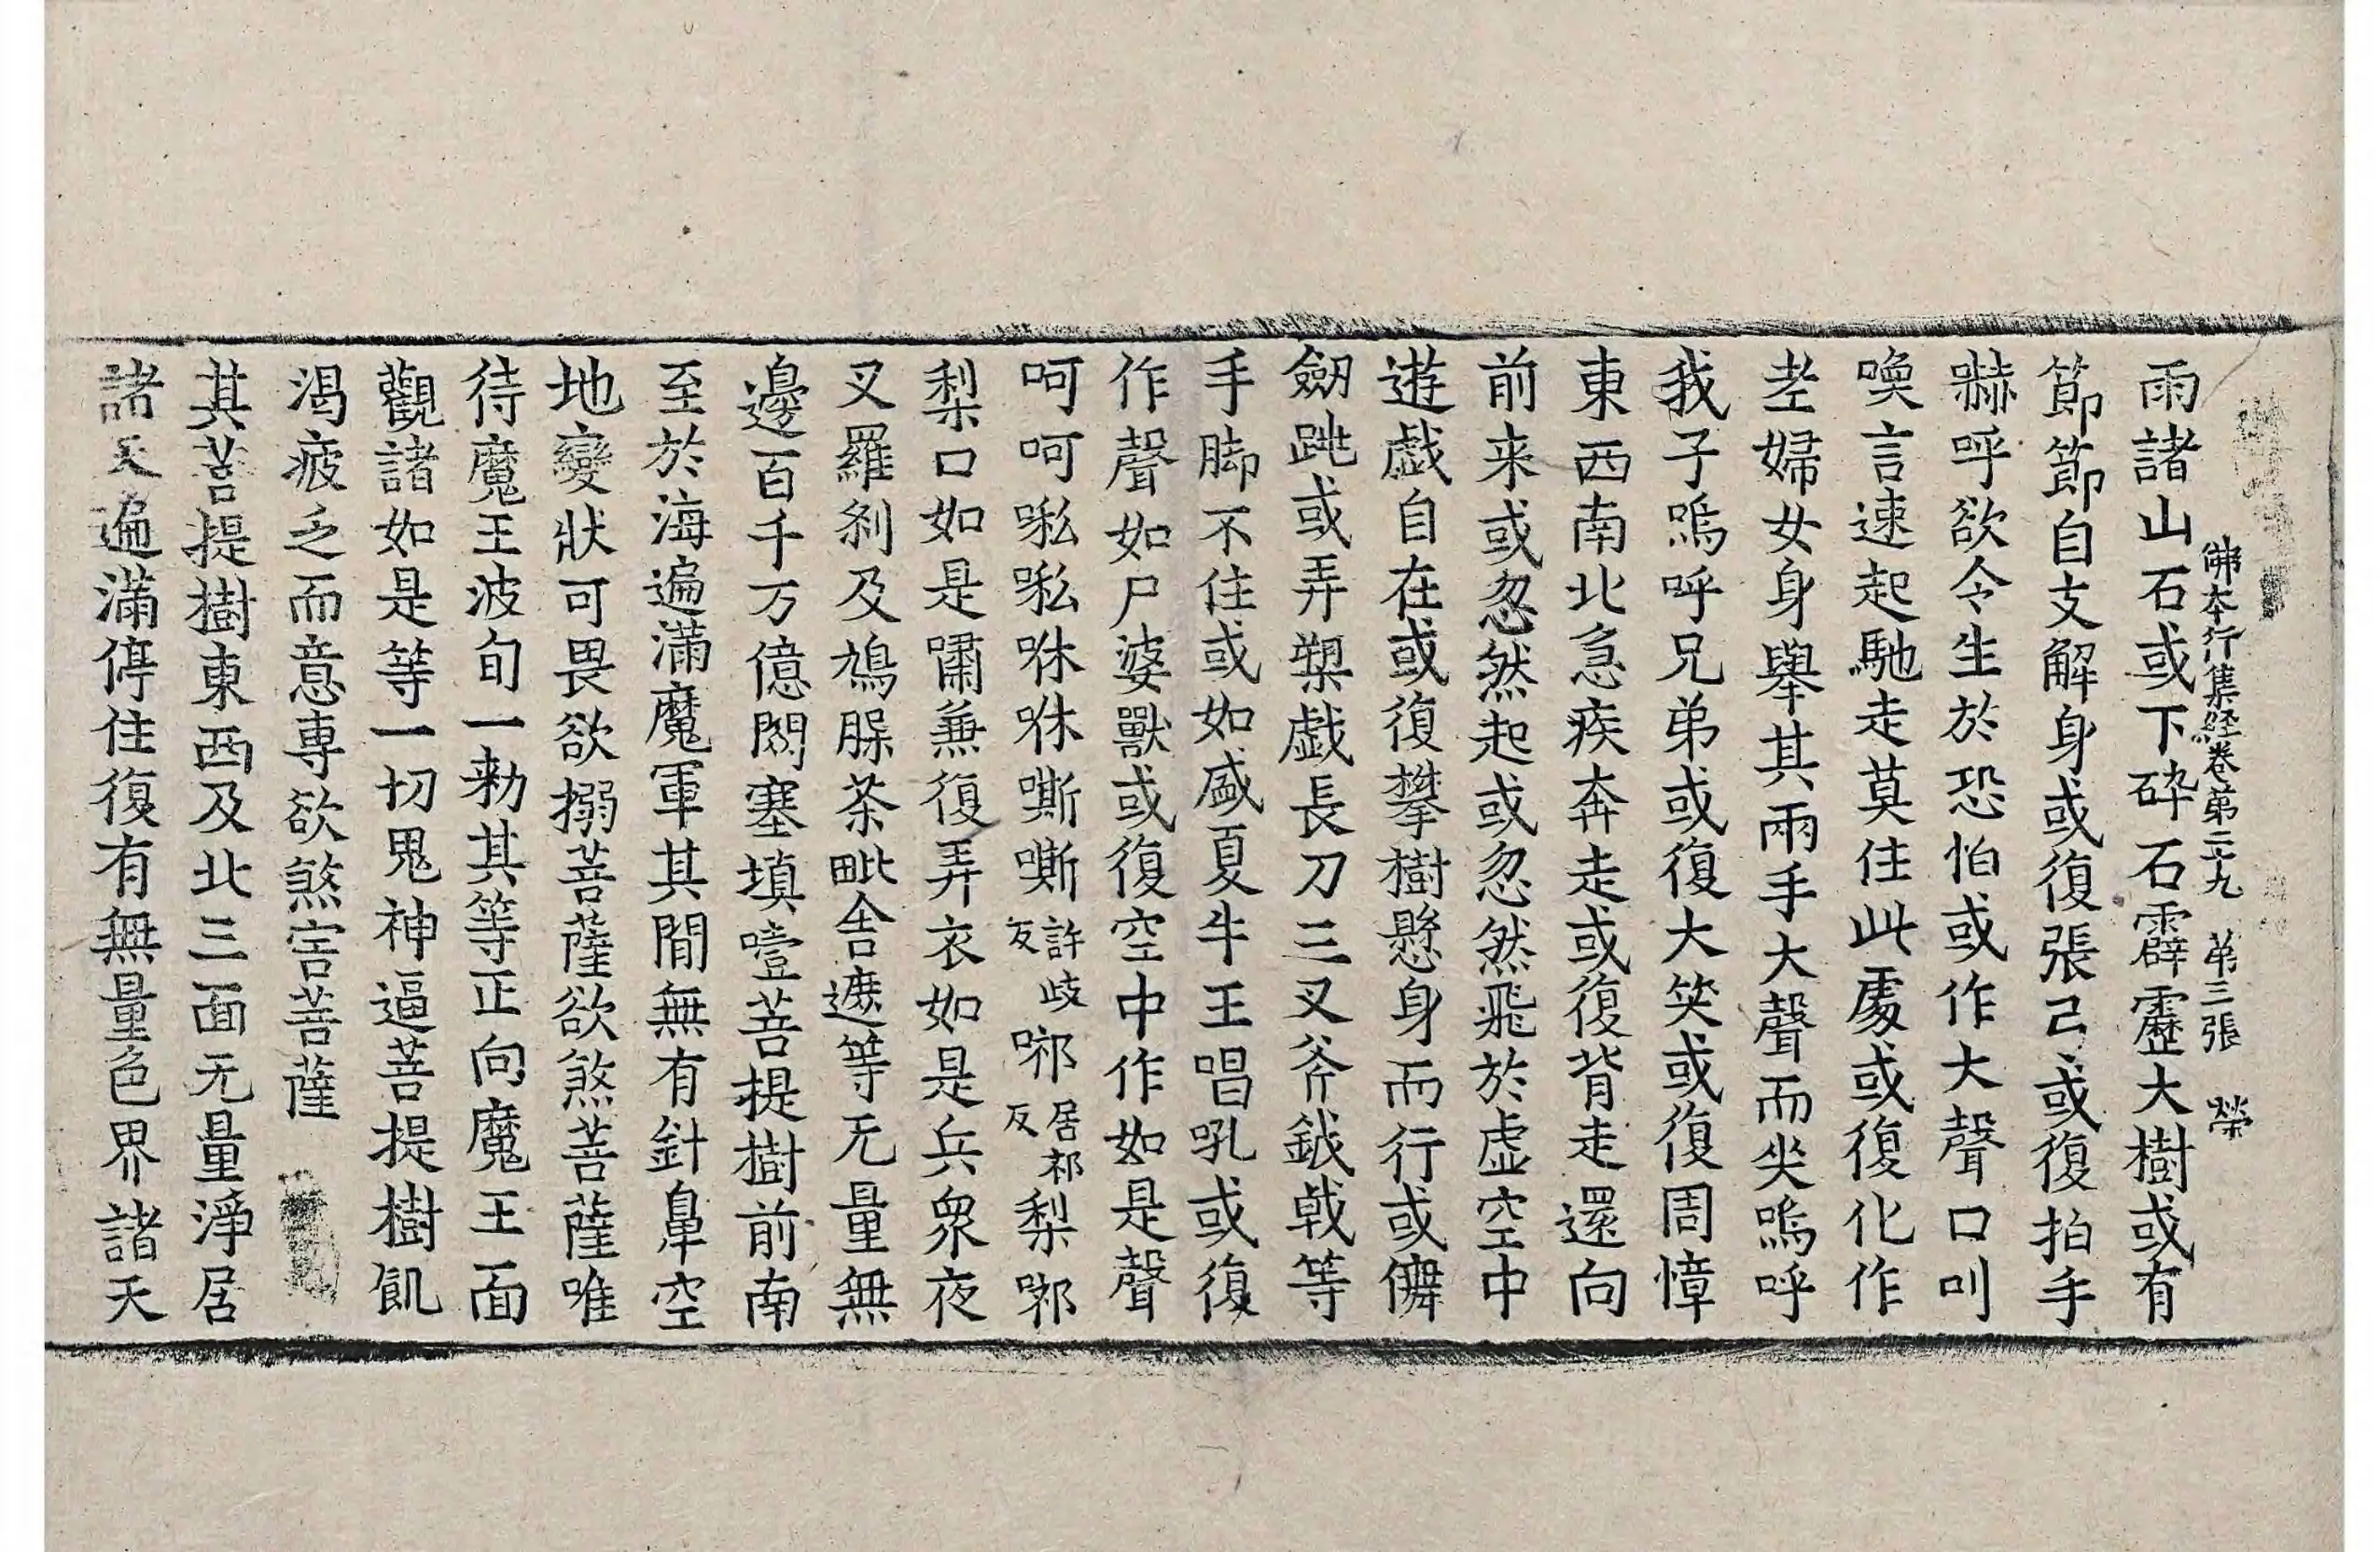 佛本行集経卷第二十九 第三張 榮
雨諸山石或下碎石霹靂大樹或有
節節自支解身或復張己或復拍手
嚇呼欲令生於恐怕或作大聲口叫
喚言速起馳走莫住此處或復化作
老婦女身舉其兩手大聲而哭嗚呼
我子嗚呼兄弟或復大笑或復周慞
東西南北急疾奔走或復背走還向
前来或忽然起或忽然飛於虛空中
遊戲自在或復攀樹懸身而行或儛
劒跳或弄槊戲長刀三叉斧鉞戟等
手脚不住或如盛夏牛王唱吼或復
作聲如尸婆獸或復空中作如是聲
呵呵㗭㗭咻咻嘶嘶許歧反㖿居祁反梨㖿
梨口如是嘯兼復弄衣如是兵衆夜
叉羅刹及鳩腬茶毗舍遮等无量無
邊百千万億閦塞填噎菩提樹前南
至於海遍滿魔軍其間無有針鼻空
地變狀可畏欲搦菩薩欲煞菩薩唯
待魔王波旬一勑其等正向魔王面
觀諸如是等一切鬼神逼菩提樹飢
渴疲乏而意專欲煞害菩薩
其菩提樹東西及北三面无量淨居
諸天遍滿停住復有無量色界諸天